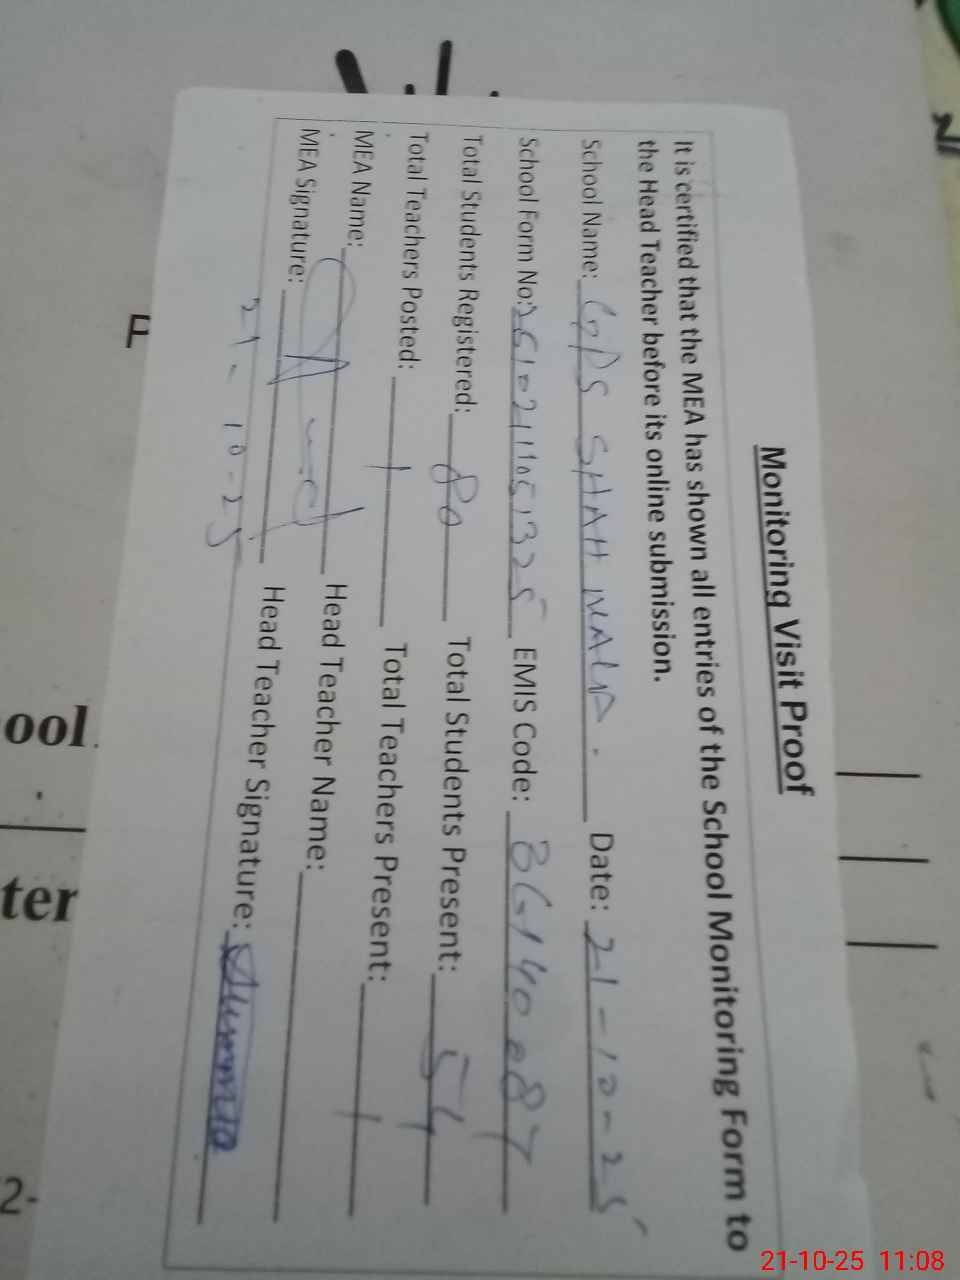 Monitoring Visit Proof
It is certified that the MEA has shown all entries of the School Monitoring Form to
the Head Teacher before its online submission.
School Name: GPS SHAH Date: 21-10-25
School Form No: EMIS Code:
Total Students Registered: 80 Total Students Present: 54
Total Teachers Posted: 1 Total Teachers Present: 1
MEA Name: Head Teacher Name:
MEA Signature: Head Teacher Signature:
21-10-25
ool
ter
2-
21-10-25 11:08